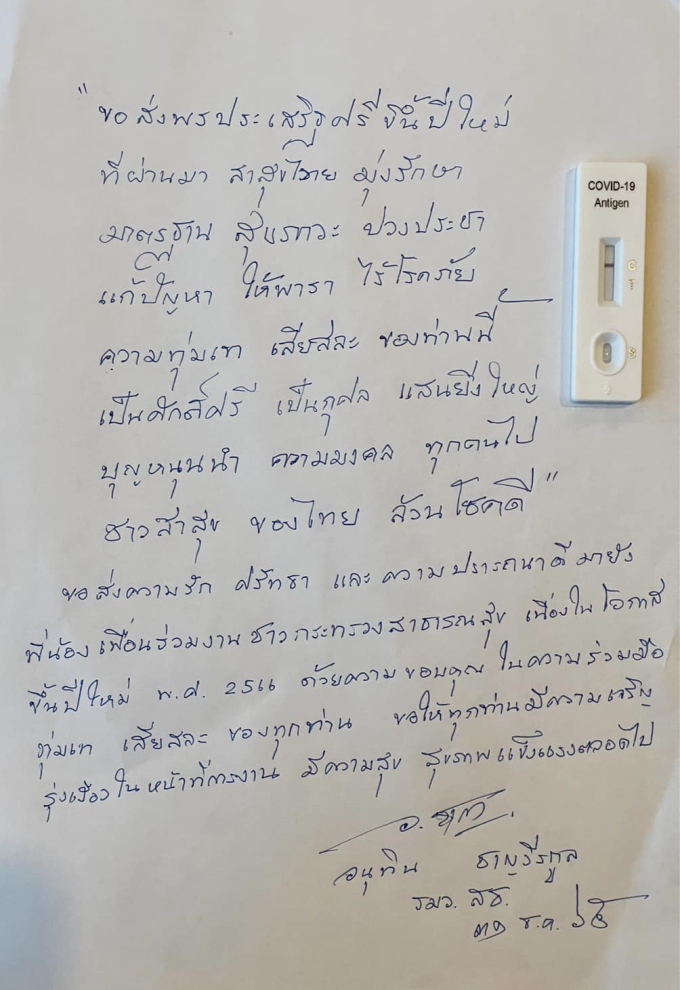 "ขอส่งพรประเสริฐศรี ขึ้นปีใหม่
ที่ผ่านมา สาสุขไทย มุ่งรักษา
มาตรฐาน สุขภาวะ ปวงประชา
แก้ปัญหา ให้พารา ไร้โรคภัย
ความทุ่มเท เสียสละ ของท่านนี้
เป็นศักดิ์ศรี เป็นกุศล แสนยิ่งใหญ่
บุญหนุนนำ ความมงคล ทุกคนไป
ชาวสาสุข ของไทย ล้วนโชคดี"
ขอส่งความรัก ศรัทธา และ ความปรารถนาดี มายัง
พี่น้อง เพื่อนร่วมงาน ชาวกระทรวงสาธารณสุข เนื่องในโอกาส
ขึ้นปีใหม่ พ.ศ. 2566 ด้วยความขอบคุณ ในความร่วมมือ
ทุ่มเท เสียสละ ของทุกท่าน ขอให้ทุกท่านมีความเจริญ
รุ่งเรืองในหน้าที่การงาน มีความสุข สุขภาพแข็งแรงตลอดไป
อนุทิน ชาญวีรกูล
รมว. สธ.
๓๑ ธ.ค. ๖๕
COVID-19
Antigen
C
T
S